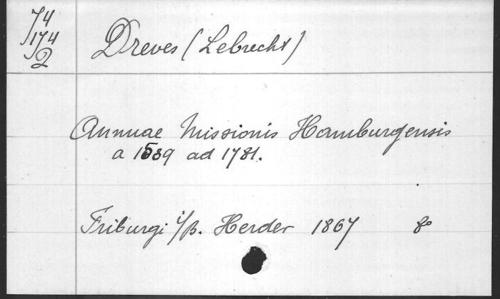 74
174
2
Dreves (Lebrecht)
Annuae Missionis Hamburgensis
a 1589 ad 1781.
Friburgi i/B. Herder 1867 8°